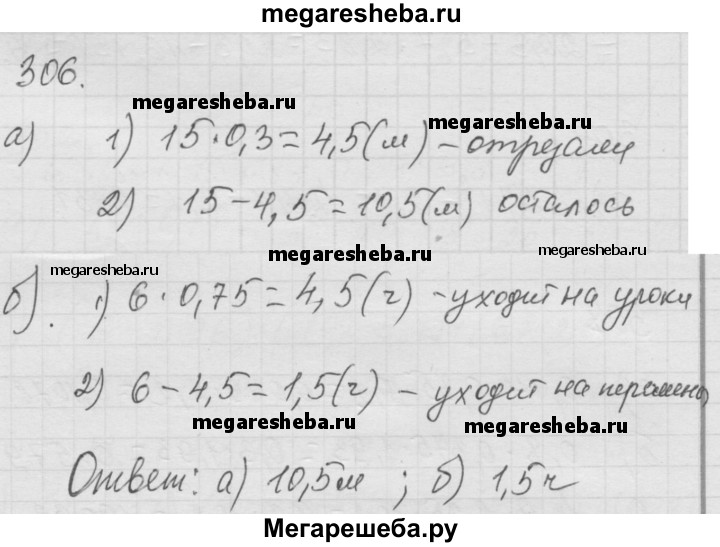 megaresheba.ru
306.
megaresheba.ru
megaresheba.ru
а) 1) 15·0,3=4,5(м) – отрезали
2) 15–4,5=10,5(м) осталось
megaresheba.ru
megaresheba.ru
megaresheba.ru
б). 1) 6·0,75=4,5(г) –уходит на уроки
2) 6–4,5=1,5(г) – уходит на перемены
megaresheba.ru
megaresheba.ru
Ответ: а) 10,5м ; б) 1,5ч
Мегарешеба.ру